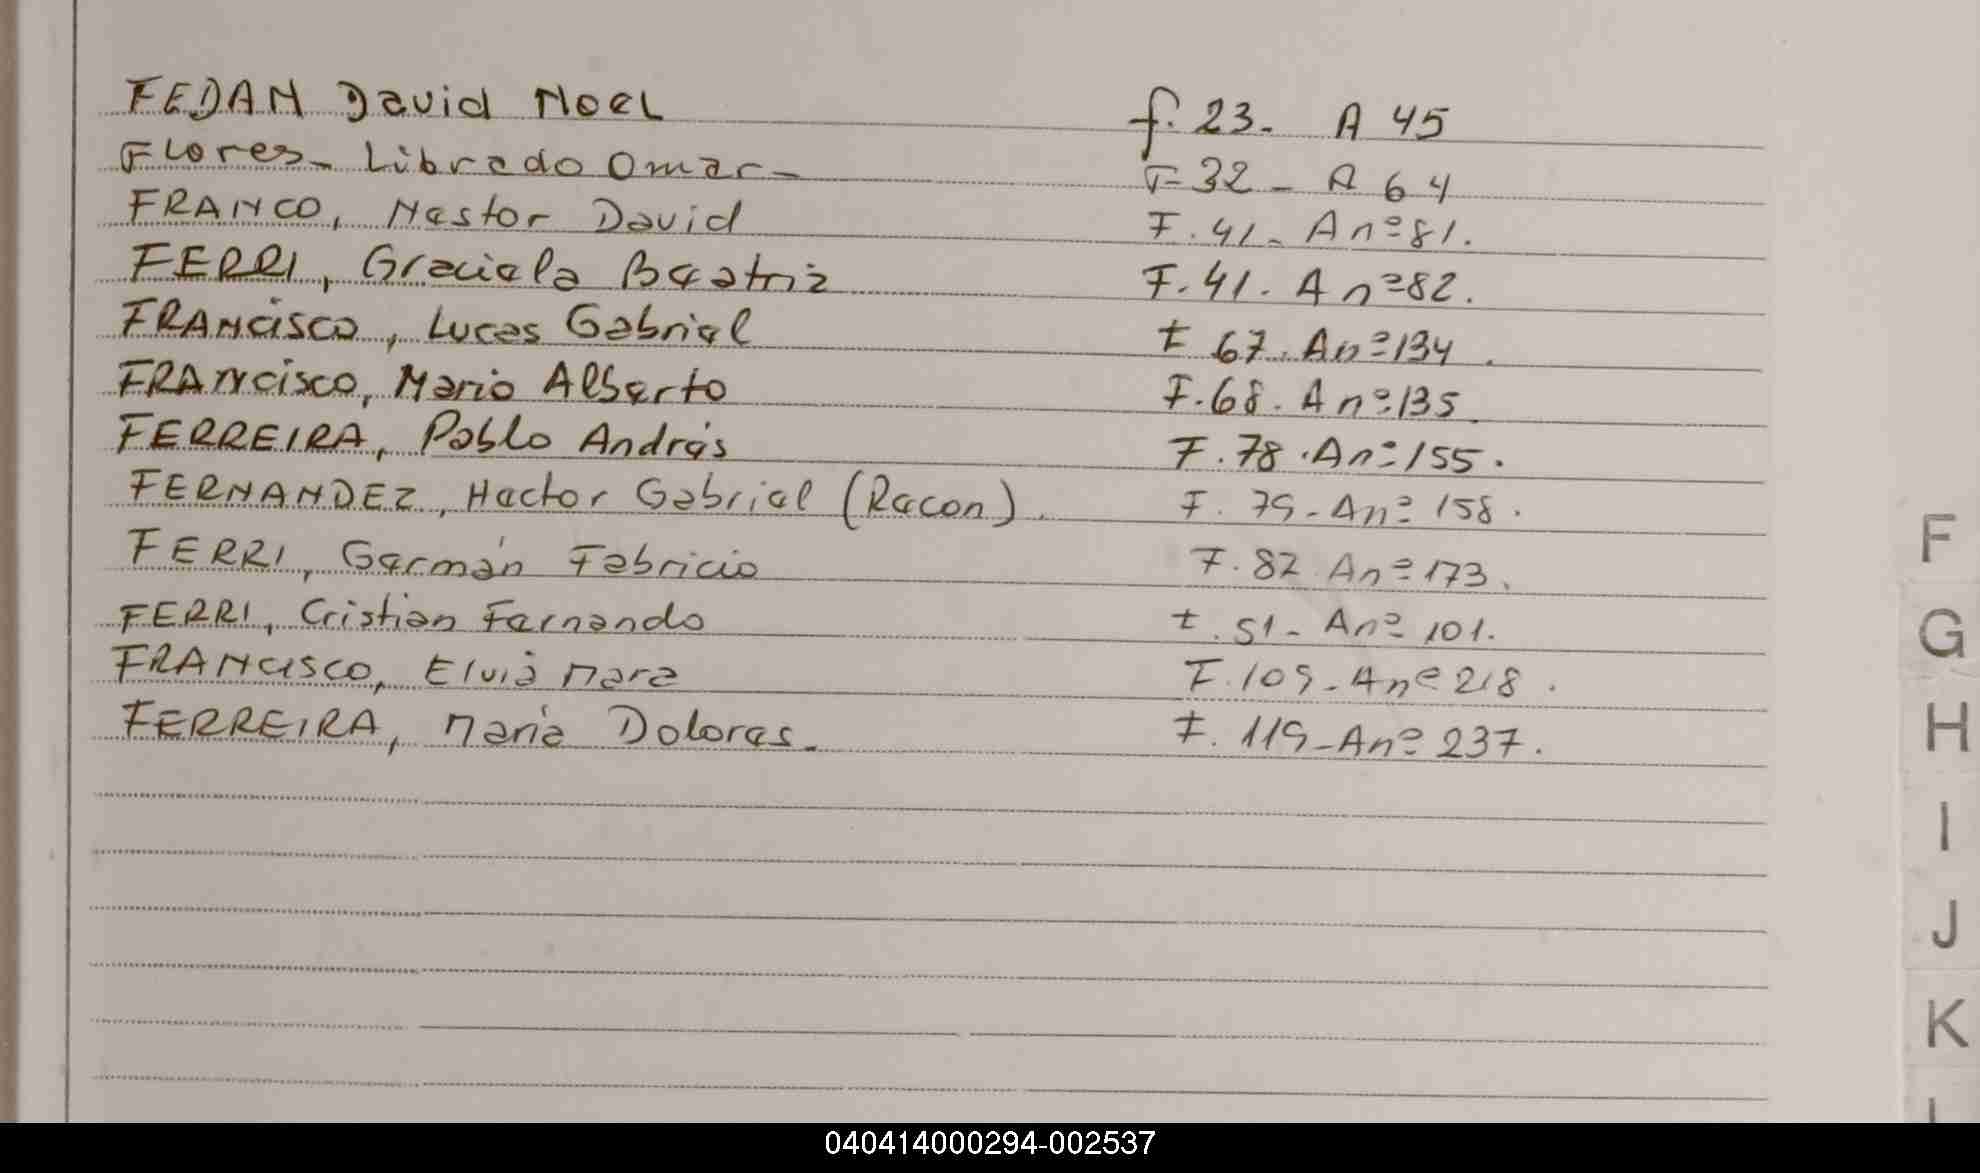 FEDAN David Noel f. 23. A 45
Flores - Librado Omar - F 32 - A 64
FRANCO, Nestor David F. 41 - A nº 81.
FERRI, Graciela Beatriz F. 41. A nº 82.
FRANCISCO, Lucas Gabriel F 67. A nº 134.
FRANCISCO, Mario Alberto F. 68. A nº 135.
FERREIRA, Pablo Andrés F. 78. A nº 155.
FERNANDEZ, Hector Gabriel (Recon). F. 79 - A nº 158.
FERRI, Germán Fabricio F. 87. A nº 173.
FERRI, Cristian Fernando F. 51 - A nº 101.
FRANCISCO, Elvia Mara F. 109 - A nº 218.
FERREIRA, María Dolores. F. 119 - A nº 237.
F
G
H
I
J
K
040414000294-002537